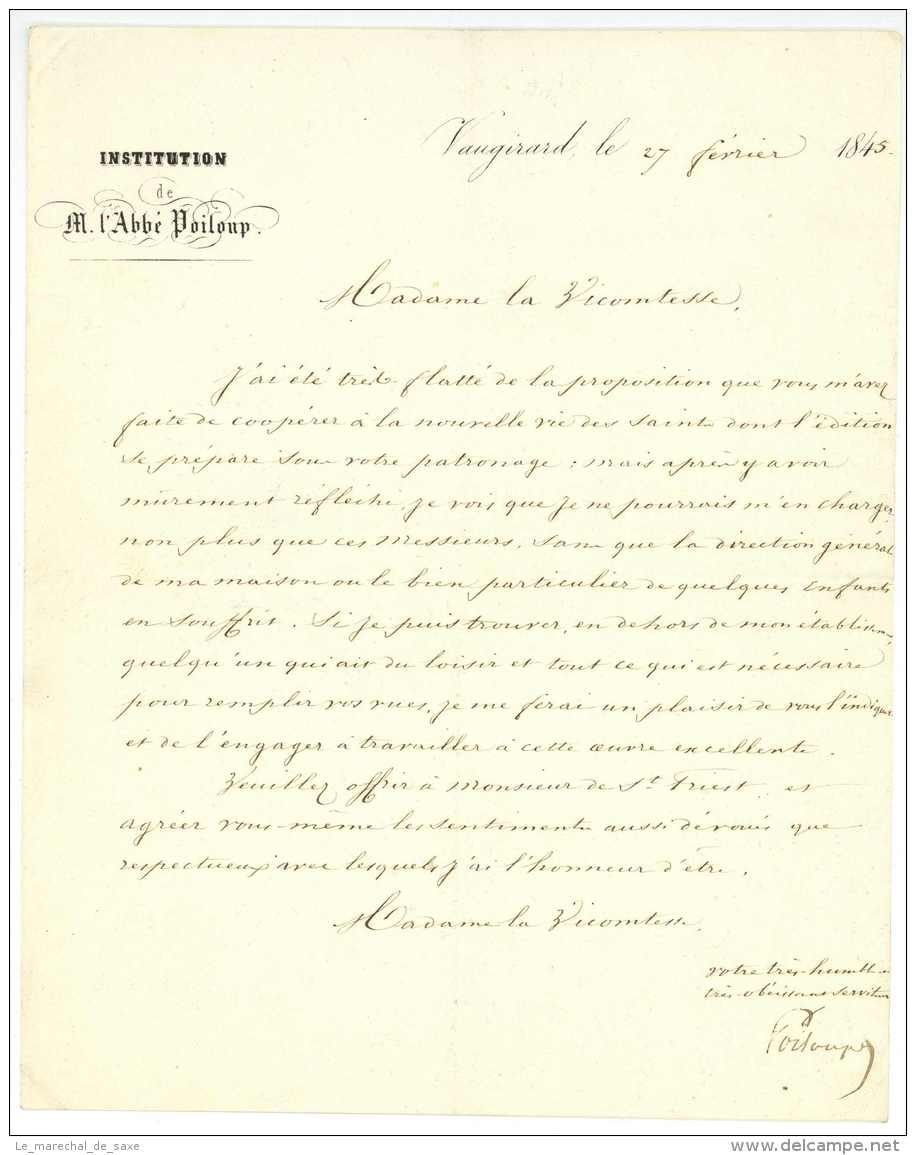 Vaugirard, le 27 février 1845.
INSTITUTION
de
M. l'Abbé Poiloup.
Madame la Vicomtesse,
J'ai été très flatté de la proposition que vous m'avez
faite de coopérer à la nouvelle vie des saints dont l'édition
se prépare sous votre patronage ; mais après y avoir
mûrement réfléchi, je vois que je ne pourrais m'en charger,
non plus que ces Messieurs, sans que la direction général
de ma maison ou le bien particulier de quelques enfants
en souffrit. Si je puis trouver, en dehors de mon établissem.,
quelqu'un qui ait du loisir et tout ce qui est nécessaire
pour remplir vos vues, je me ferai un plaisir de vous l'indiquer
et de l'engager à travailler à cette œuvre excellente.
Veuillez offrir à Monsieur de St. Priest, et
agréer vous-même les sentiments aussi dévoués que
respectueux avec lesquels j'ai l'honneur d'être,
Madame la Vicomtesse,
votre très-humble
très-obéissant serviteur
Poiloup
Le_marechal_de_saxe
www.delcampe.net